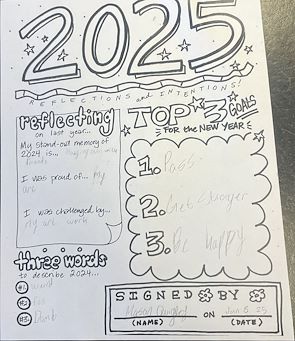 2025
REFLECTIONS and INTENTIONS!
reflecting
on last year...
My stand-out memory of
2024 is...
friends
I was proud of... my
art
I was challenged by...
my art work
three words
to describe 2024...
#1 weird
#2 fun
#3 Dumb
TOP 3 GOALS
FOR the NEW YEAR
1. Pass
2. Get stronger
3. Be happy
SIGNED BY
ON Jan 6 25
(NAME) (DATE)